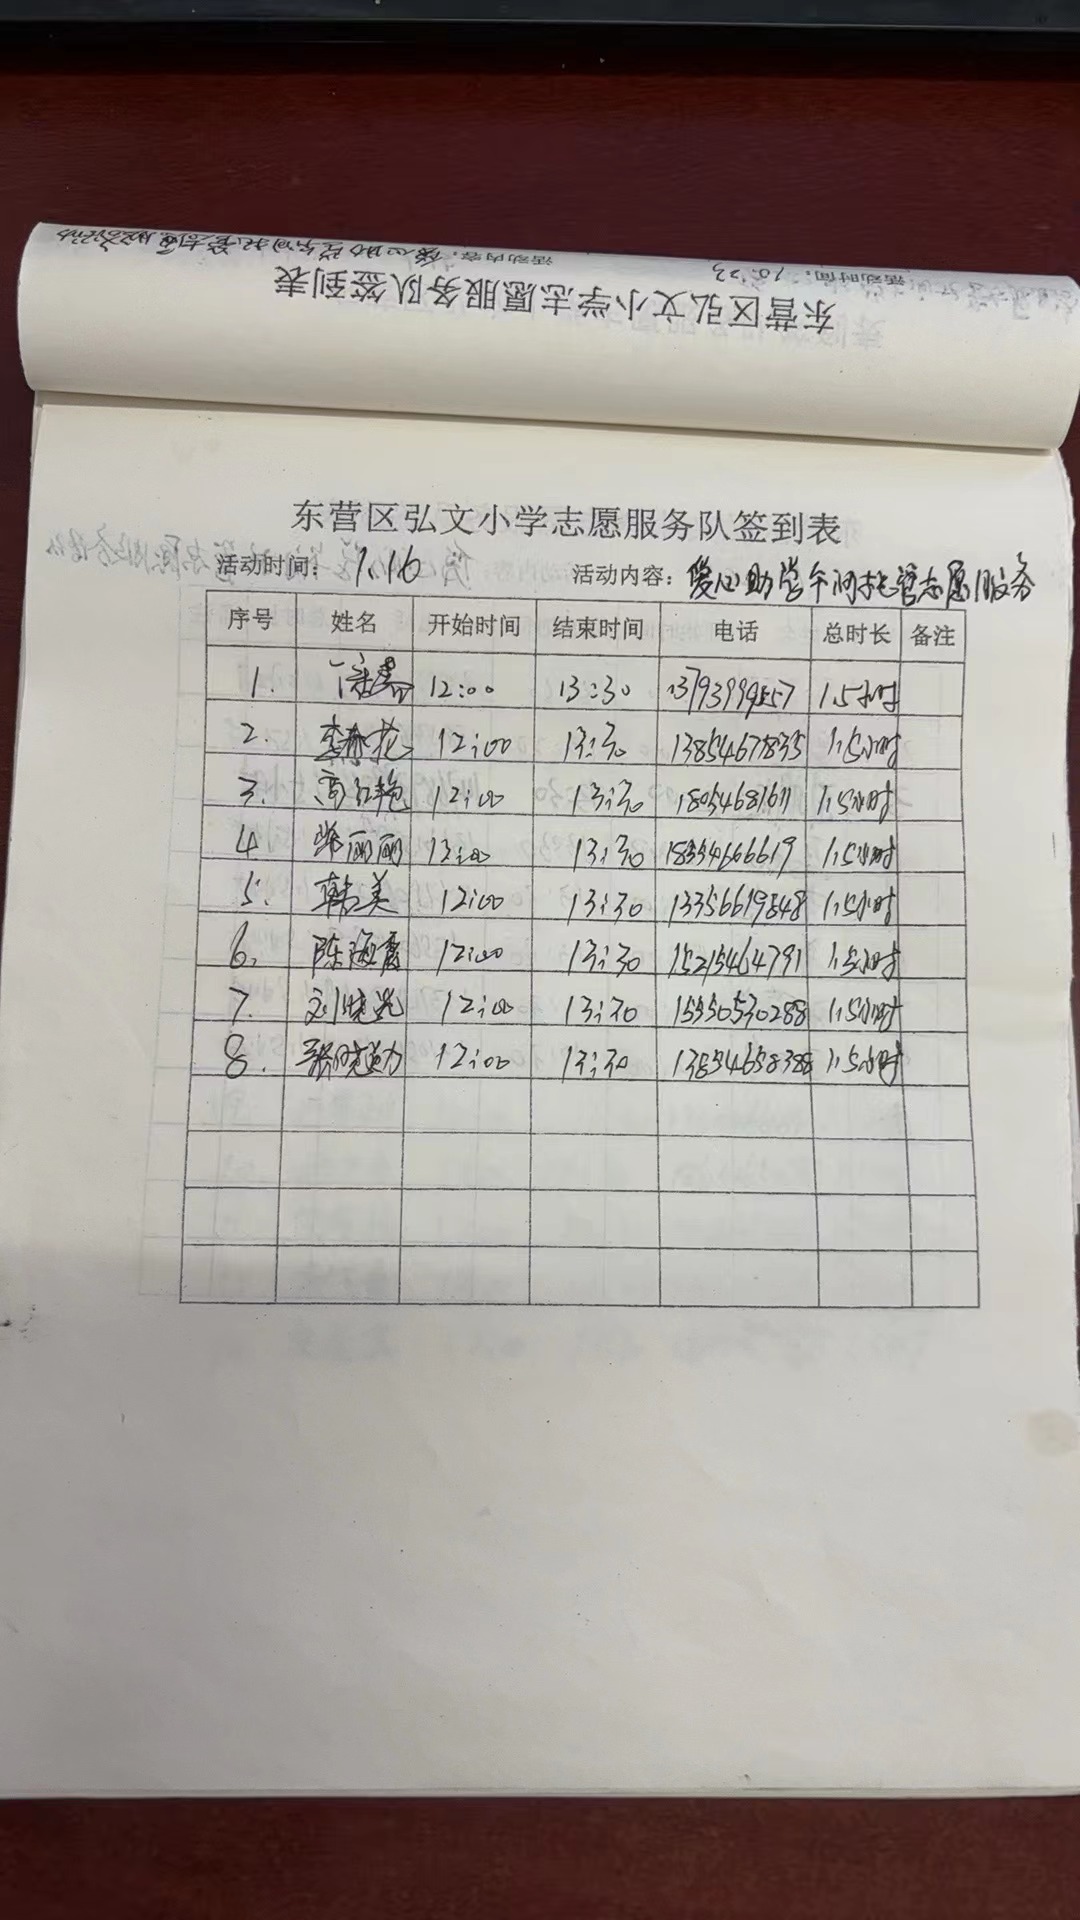 东营区弘文小学志愿服务队签到表
活动时间: 10.23
活动内容:
东营区弘文小学志愿服务队签到表
活动时间: 1.16 活动内容: 爱心助学午间托管志愿服务
序号 姓名 开始时间 结束时间 电话 总时长 备注
1. 12:00 13:30 13793999557 1.5小时
2. 李春花 12:00 13:30 13854678835 1.5小时
3. 高红艳 12:00 13:30 18054681611 1.5小时
4 丽丽 12:00 13:30 18554666619 1.5小时
5. 韩美 12:00 13:30 13356619848 1.5小时
6. 陈海霞 12:00 13:30 15215464791 1.5小时
7. 刘晓 12:00 13:30 15550530288 1.5小时
8. 张晓 12:00 13:30 13854658388 1.5小时